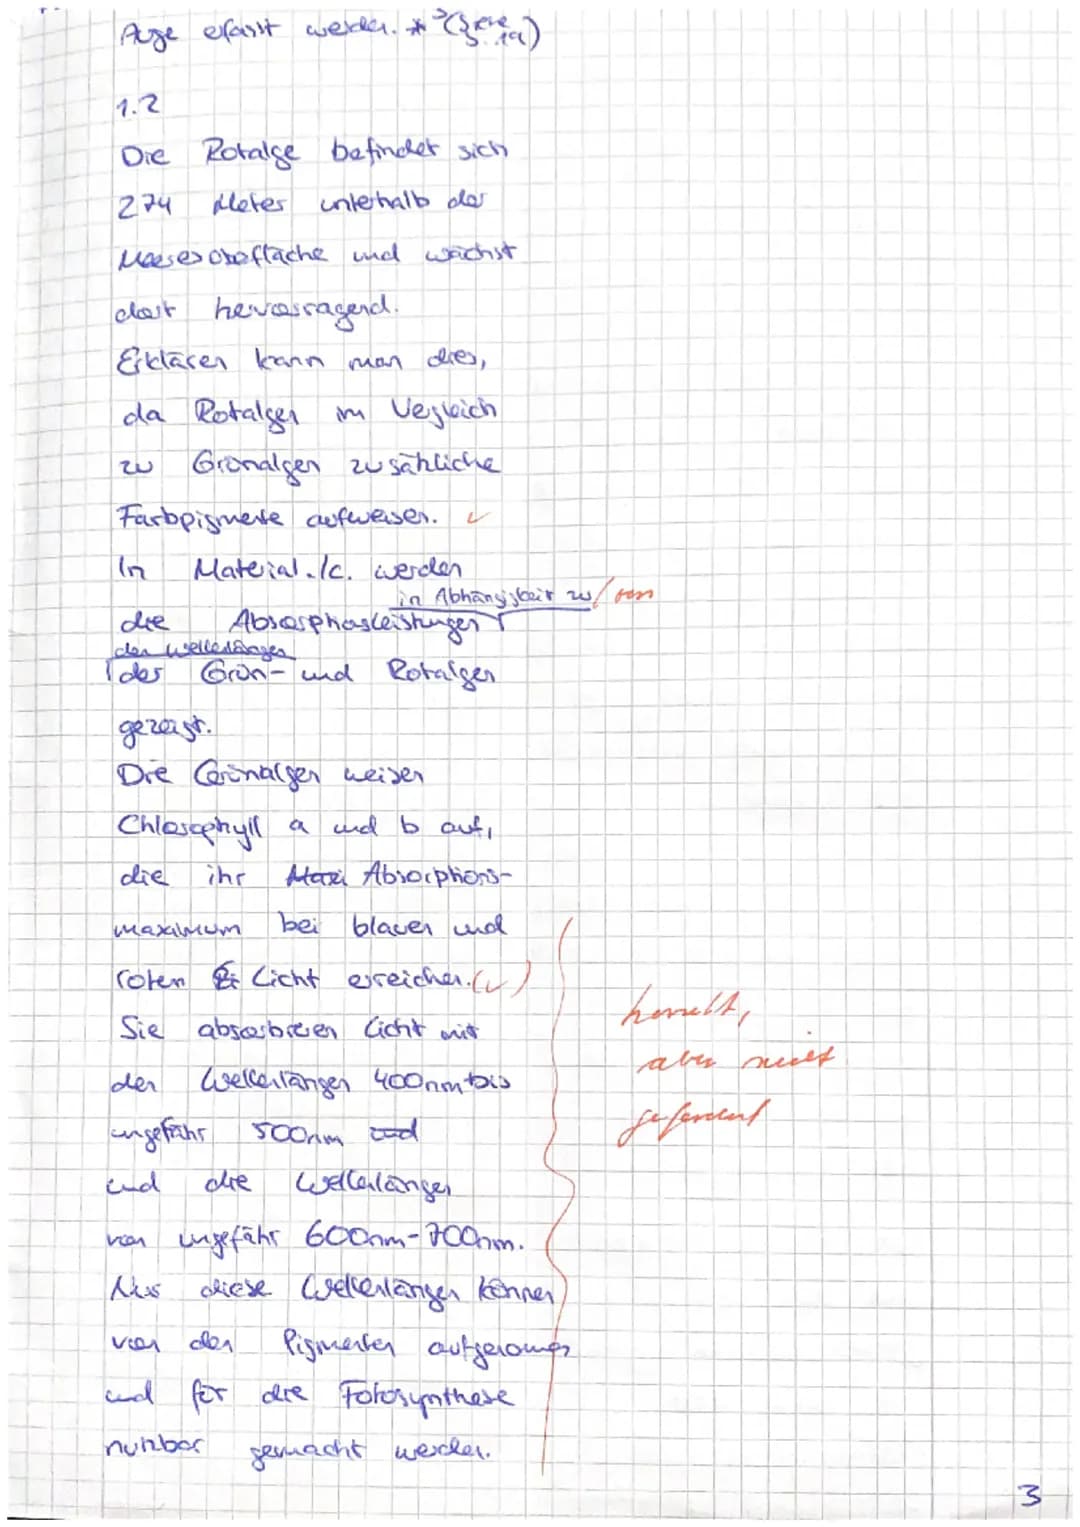 Auge erfasst werden. * ³(siehe S. 19)
1.2
Die Rotalge befindet sich
274 Meter unterhalb der
Meeresoberfläche und wächst
dort hervorragend.
Erklären kann man dies,
da Rotalgen im Vergleich
zu Grünalgen zusätzliche
Farbpigmente aufweisen. ✓
In Material 1c. werden
in Abhängigkeit zu / von
die Absorptionsleistungen
den Wellenlängen
der Grün- und Rotalgen
gezeigt.
Die Grünalgen weisen
Chlorophyll a und b auf,
die ihr Maxi Absorptions-
maximum bei blauen und
roten Licht erreichen. (✓)
Sie absorbieren Licht mit
den Wellenlängen 400nm bis
ungefähr 500nm und
und die Wellenlängen
von ungefähr 600nm-700nm.
Nur diese Wellenlängen können
von den Pigmenten aufgenomen
und für die Fotosynthese
nutzbar gemacht werden.
korrekt,
aber nicht
gefordert
3